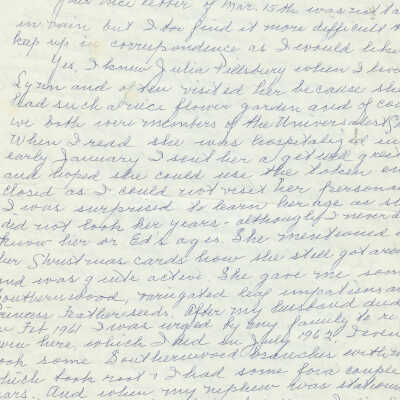 Your nice letter of Mar. 15th was rec'd
in main, but I too find it more difficult
keep up in correspondence as I would like
Yes, I knew Julia Pillsbury when I lived
Lynn and often visited her because she
had such a nice flower garden and of cou
we both were members of the Universalist
When I read she was hospitalized in
early January I sent her a get well greet
and hoped she could use the token en
closed as I could not visit her persona
I was surprised to learn her age as s
did not look her years - although I never d
know her or Ed's ages. She mentioned
her Christmas cards how she still got aro
and was quite active. She gave me som
Southernwood, variegated leaf impatiens an
Princess Feather seeds. After my husband died
in Feb 1961 I was urged by my family to re
here, which I did in July 1962. I
ook some Southernwood branches with
which took root & I had some for a couple
ears. And when my nephew was station